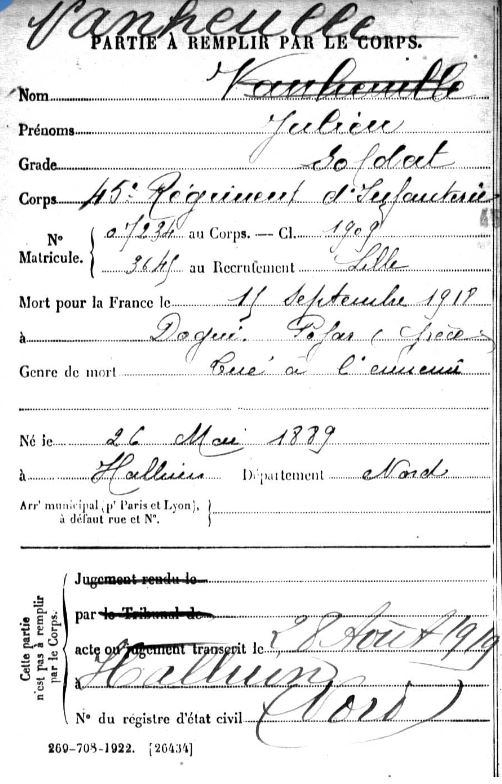 Vanheulle
PARTIE À REMPLIR PAR LE CORPS.
Nom Vanheuille
Prénoms Julien
Grade Soldat
Corps 45e Régiment d'Infanterie
N° Matricule. 07234 au Corps. — Cl. 1909
3645 au Recrutement Lille
Mort pour la France le 15 Septembre 1918
à Pojar (Grèce)
Genre de mort Tué à l'ennemi
Né le 26 Mai 1889
à Halluin Département Nord
Arrt municipal (pr Paris et Lyon),
à défaut rue et N°.
Cette partie
n'est pas à remplir
par le Corps.
Jugement rendu le
par le Tribunal de
acte ou jugement transcrit le 28 Août 1919
à Halluin
N° du registre d'état civil (Nord)
269-708-1922. [26434]